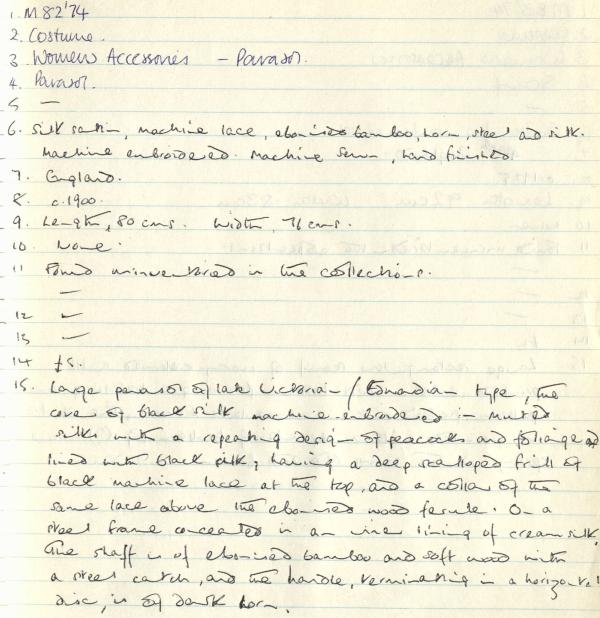 1. M82'74
2. Costume.
3 Women's Accessories - Parasol.
4. Parasol.
5 —
6. Silk satin, machine lace, ebonised bamboo, horn, steel and silk.
Machine embroidered. Machine sewn, hand finished
7. England.
8. c.1900.
9. Length, 80 cms. Width, 76 cms.
10. None.
11 Found uninventoried in the collections.
—
12 —
13 —
14 £5.
15. Large parasol of late Victorian / Edwardian type, the
cover of black silk machine-embroidered in muted
silks with a repeating design of peacocks and foliage and
lined with black silk; having a deep scalloped frill of
black machine lace at the top, and a collar of the
same lace above the ebonised wood ferule. On a
steel frame concealed in an inner lining of cream silk.
The shaft is of ebonised bamboo and soft wood with
a steel catch, and the handle, terminating in a horizontal
disc, is of dark horn.